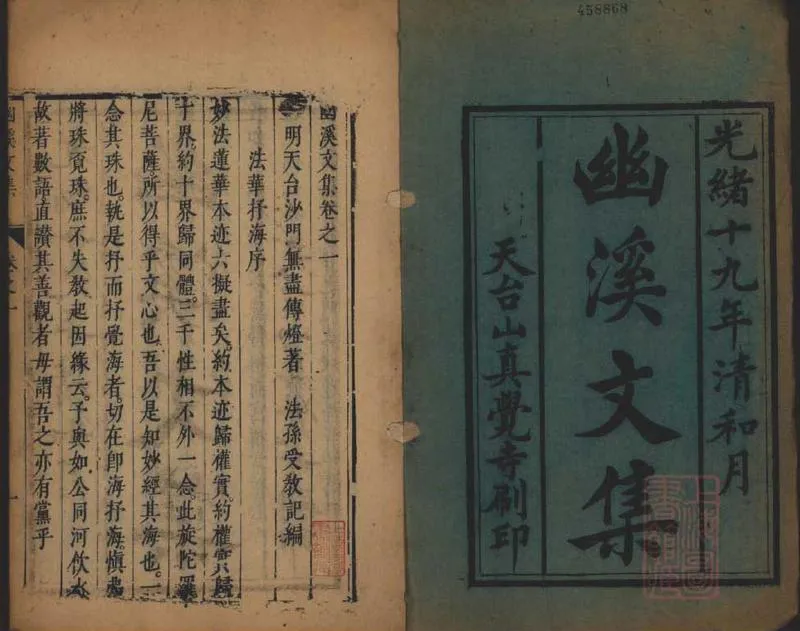 458868
光緒十九年清和月
幽溪文集
天台山真覺寺刷印
幽溪文集卷之一
明天台沙門無盡傳燈著 法孫受教記編
法華抒海序
妙法蓮華本迹六擬盡矣約本迹歸權實約權實歸
十界約十界歸同體三千性相不外一念此旋陀羅
尼菩薩所以得乎文心也吾以是知妙經其海也一
念其珠也執是抒而抒覺海者切在卽海抒海慎
將珠覓珠庶不失教起因緣云予與如公同河飲水
故著數語直讚其善觀者毋謂吾之亦有黨乎
幽溪文集 卷之一 一